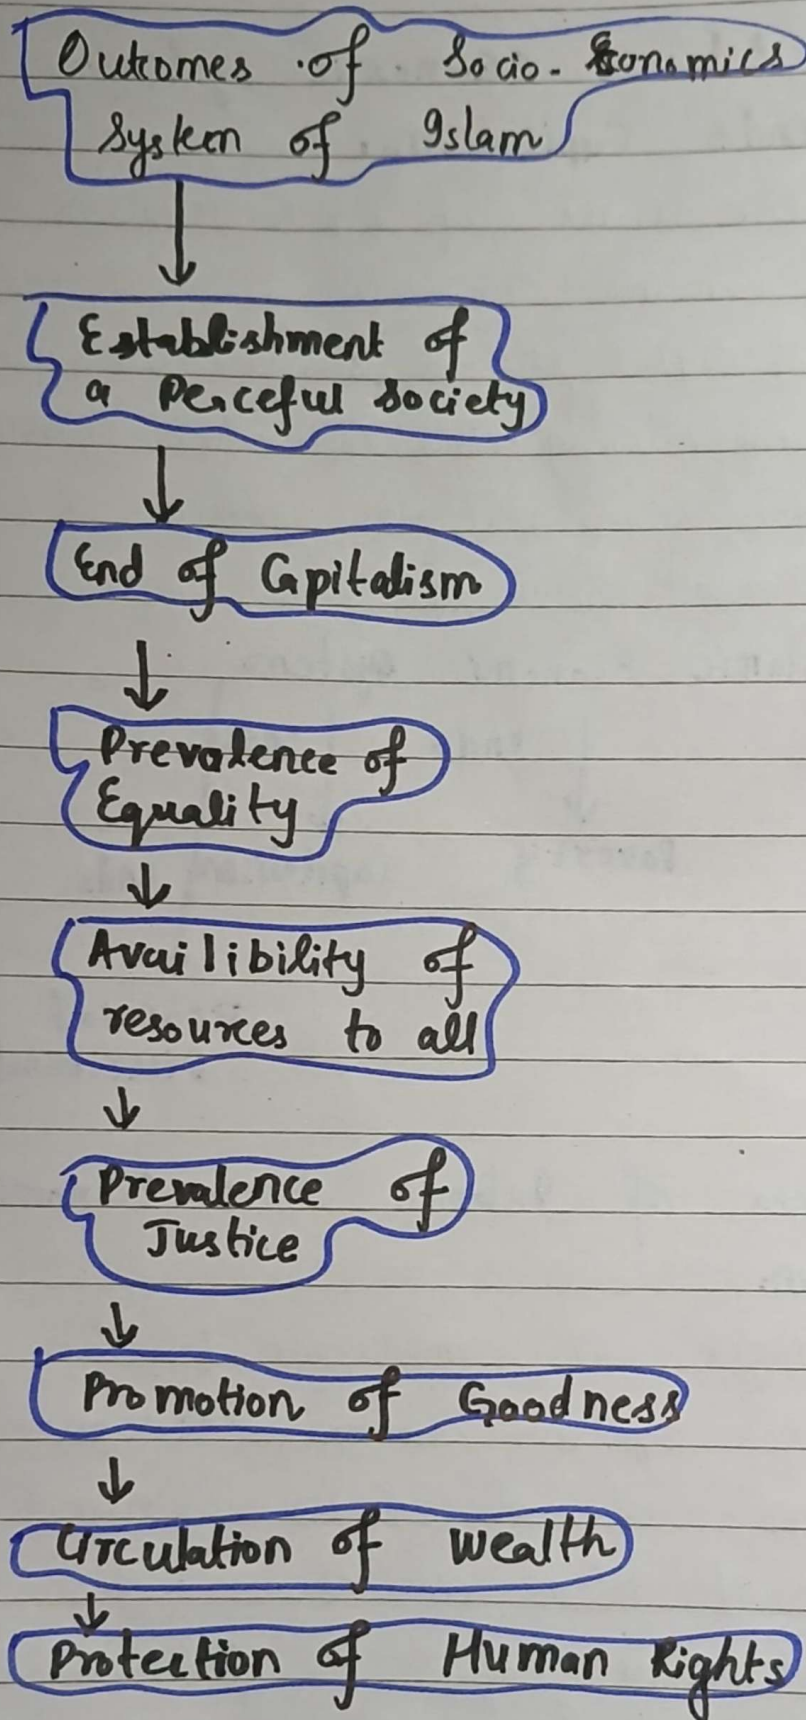 Outcomes of Socio-Economics
System of Islam
Establishment of
a Peaceful Society
End of Capitalism
Prevalence of
Equality
Availibility of
resources to all
Prevalence of
Justice
Promotion of Goodness
Circulation of wealth
Protection of Human Rights